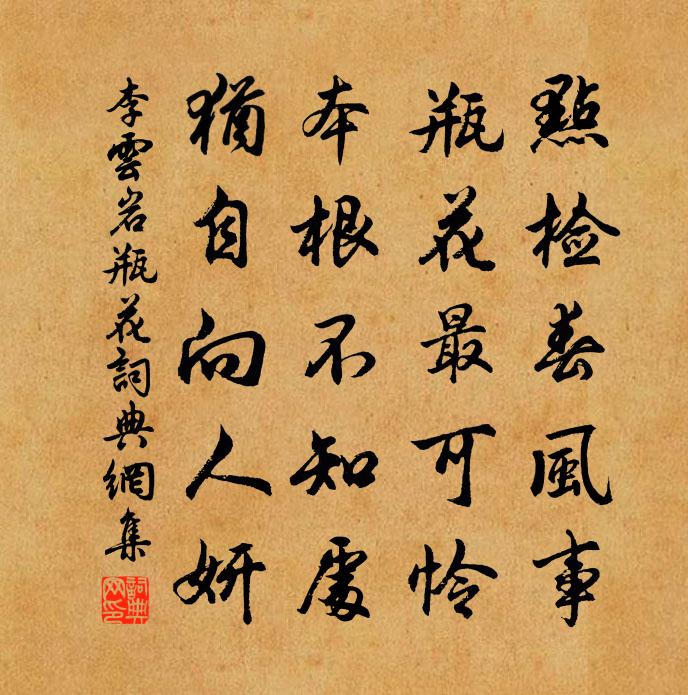 點檢春風事
瓶花最可憐
本根不知處
猶自向人妍
李雲岩瓶花詞典網集
詞典网印